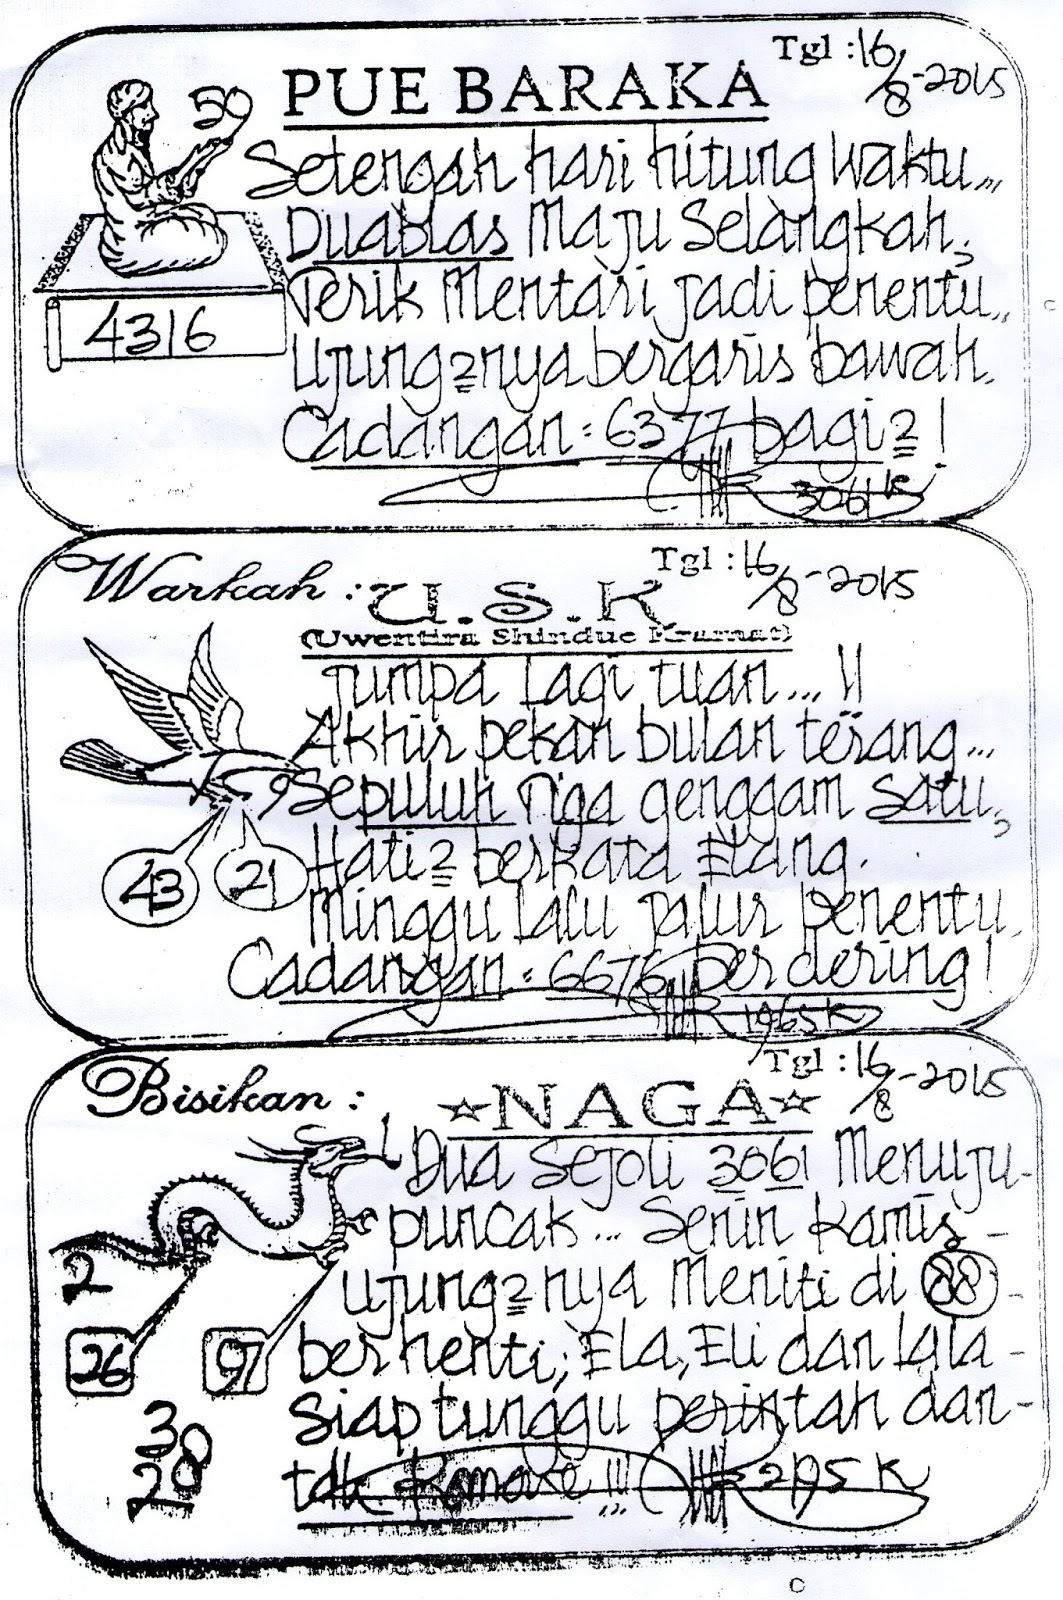 Tgl : 16/8-2015
PUE BARAKA
50
Setengah hari hitung waktu...
Duablas Maju Selangkah,
Terik Mentari jadi penentu..
4316
Ujung2nya bergaris bawah.
Cadangan : 6377 bagi2 !
3061 k
Tgl : 16/8-2015
Warkah : U.S.K
(Uwentira Shindue Kramat)
Jumpa Lagi tuan... !!
Akhir pekan bulan terang...
Sepuluh Tiga genggam Satu,
43 21
Hati2 berkata Elang.
Minggu Lalu jalur penentu.
Cadangan : 6676 per dering !
1965 K
Tgl : 16/8-2015
Bisikan : ☆NAGA☆
Dua Sejoli 3061 Menuju-
puncak... Senin Kamis -
2
Ujung2nya Meniti di 88 -
26 97
berhenti, Ela, Eli dan Lala -
Siap tunggu perintah dan-
30
28
tdk !!! 2195 K